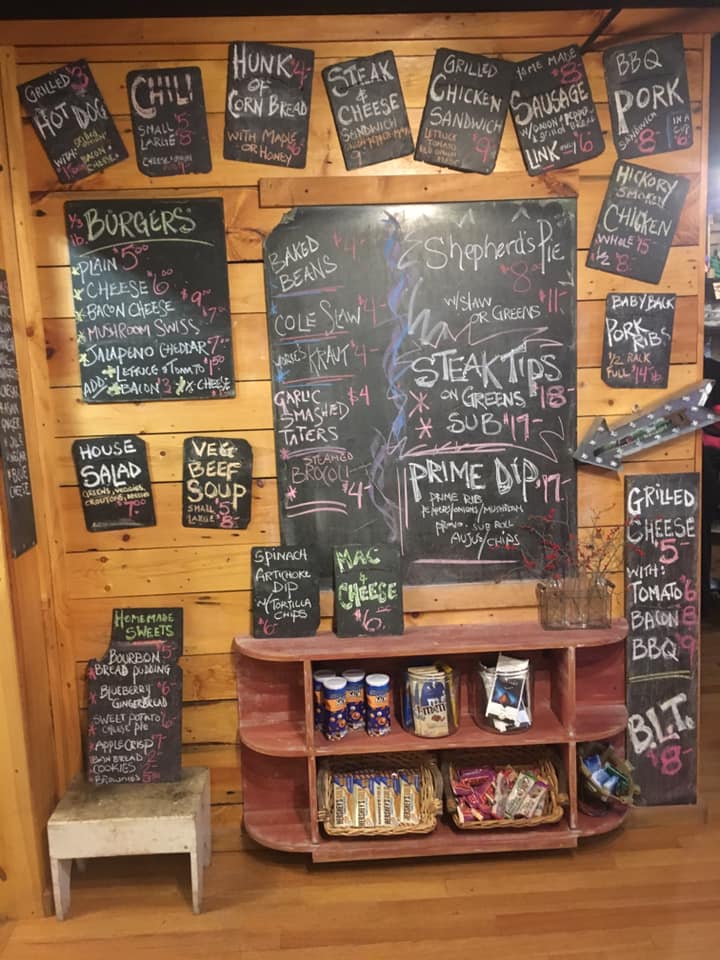 GRILLED $3
HOT DOG
WITH
BACON
CHEESE
CHILI
SMALL $5
LARGE 8
CHEESE & ONION
HUNK $4-
OF
CORN BREAD
WITH MAPLE
OR HONEY
STEAK
&
CHEESE
SANDWICH
9
GRILLED
CHICKEN
SANDWICH
LETTUCE
TOMATO
RED ONION
$9
HOME MADE
$8-
SAUSAGE
W/ONION & PEPPER
LINK 6
BBQ
PORK
SANDWICH
8-
IN A
CUP
6
HICKORY
SMOKED
CHICKEN
WHOLE 15-
1/2 8-
BABY BACK
PORK
RIBS
1/2 RACK
FULL
1/3 lb. BURGERS
PLAIN $5.00
CHEESE $6.00
BACON CHEESE $9.00
MUSHROOM SWISS $7-
JALAPENO CHEDDAR $7.00
+ LETTUCE & TOMATO $1.50
ADD: + BACON $3 + CHEESE
BAKED $4-
BEANS
COLE SLAW $4-
KRAUT $4-
GARLIC $4
SMASHED
TATERS
STEAMED
BROCOLI
$4-
Shepherd's Pie
$8.00
W/SLAW $11-
OR GREENS
STEAK TIPS
ON GREENS $18-
SUB $17-
PRIME DIP $17-
PRIME RIB
PEPPERS/ONIONS/MUSHROOM
PROVO. SUB ROLL
AUJUS/CHIPS
HOUSE
SALAD
GREENS, VEGGIES,
CROUTONS, DRESSING
VEG
BEEF
SOUP
SMALL 5-
LARGE 8-
SPINACH
ARTICHOKE
DIP
W/TORTILLA
CHIPS
$6-
MAC
&
CHEESE
$6.
GRILLED
CHEESE
5-
WITH:
TOMATO 6
BACON 8
BBQ 9
B.L.T.
$8-
HOMEMADE
SWEETS
BOURBON $5-
BREAD PUDDING
BLUEBERRY $6-
GINGERBREAD
SWEET POTATO 6-
CHEESE PIE
APPLE CRISP 7-
COOKIES 2-
BROWNIES
m&m's
HERSHEY'S